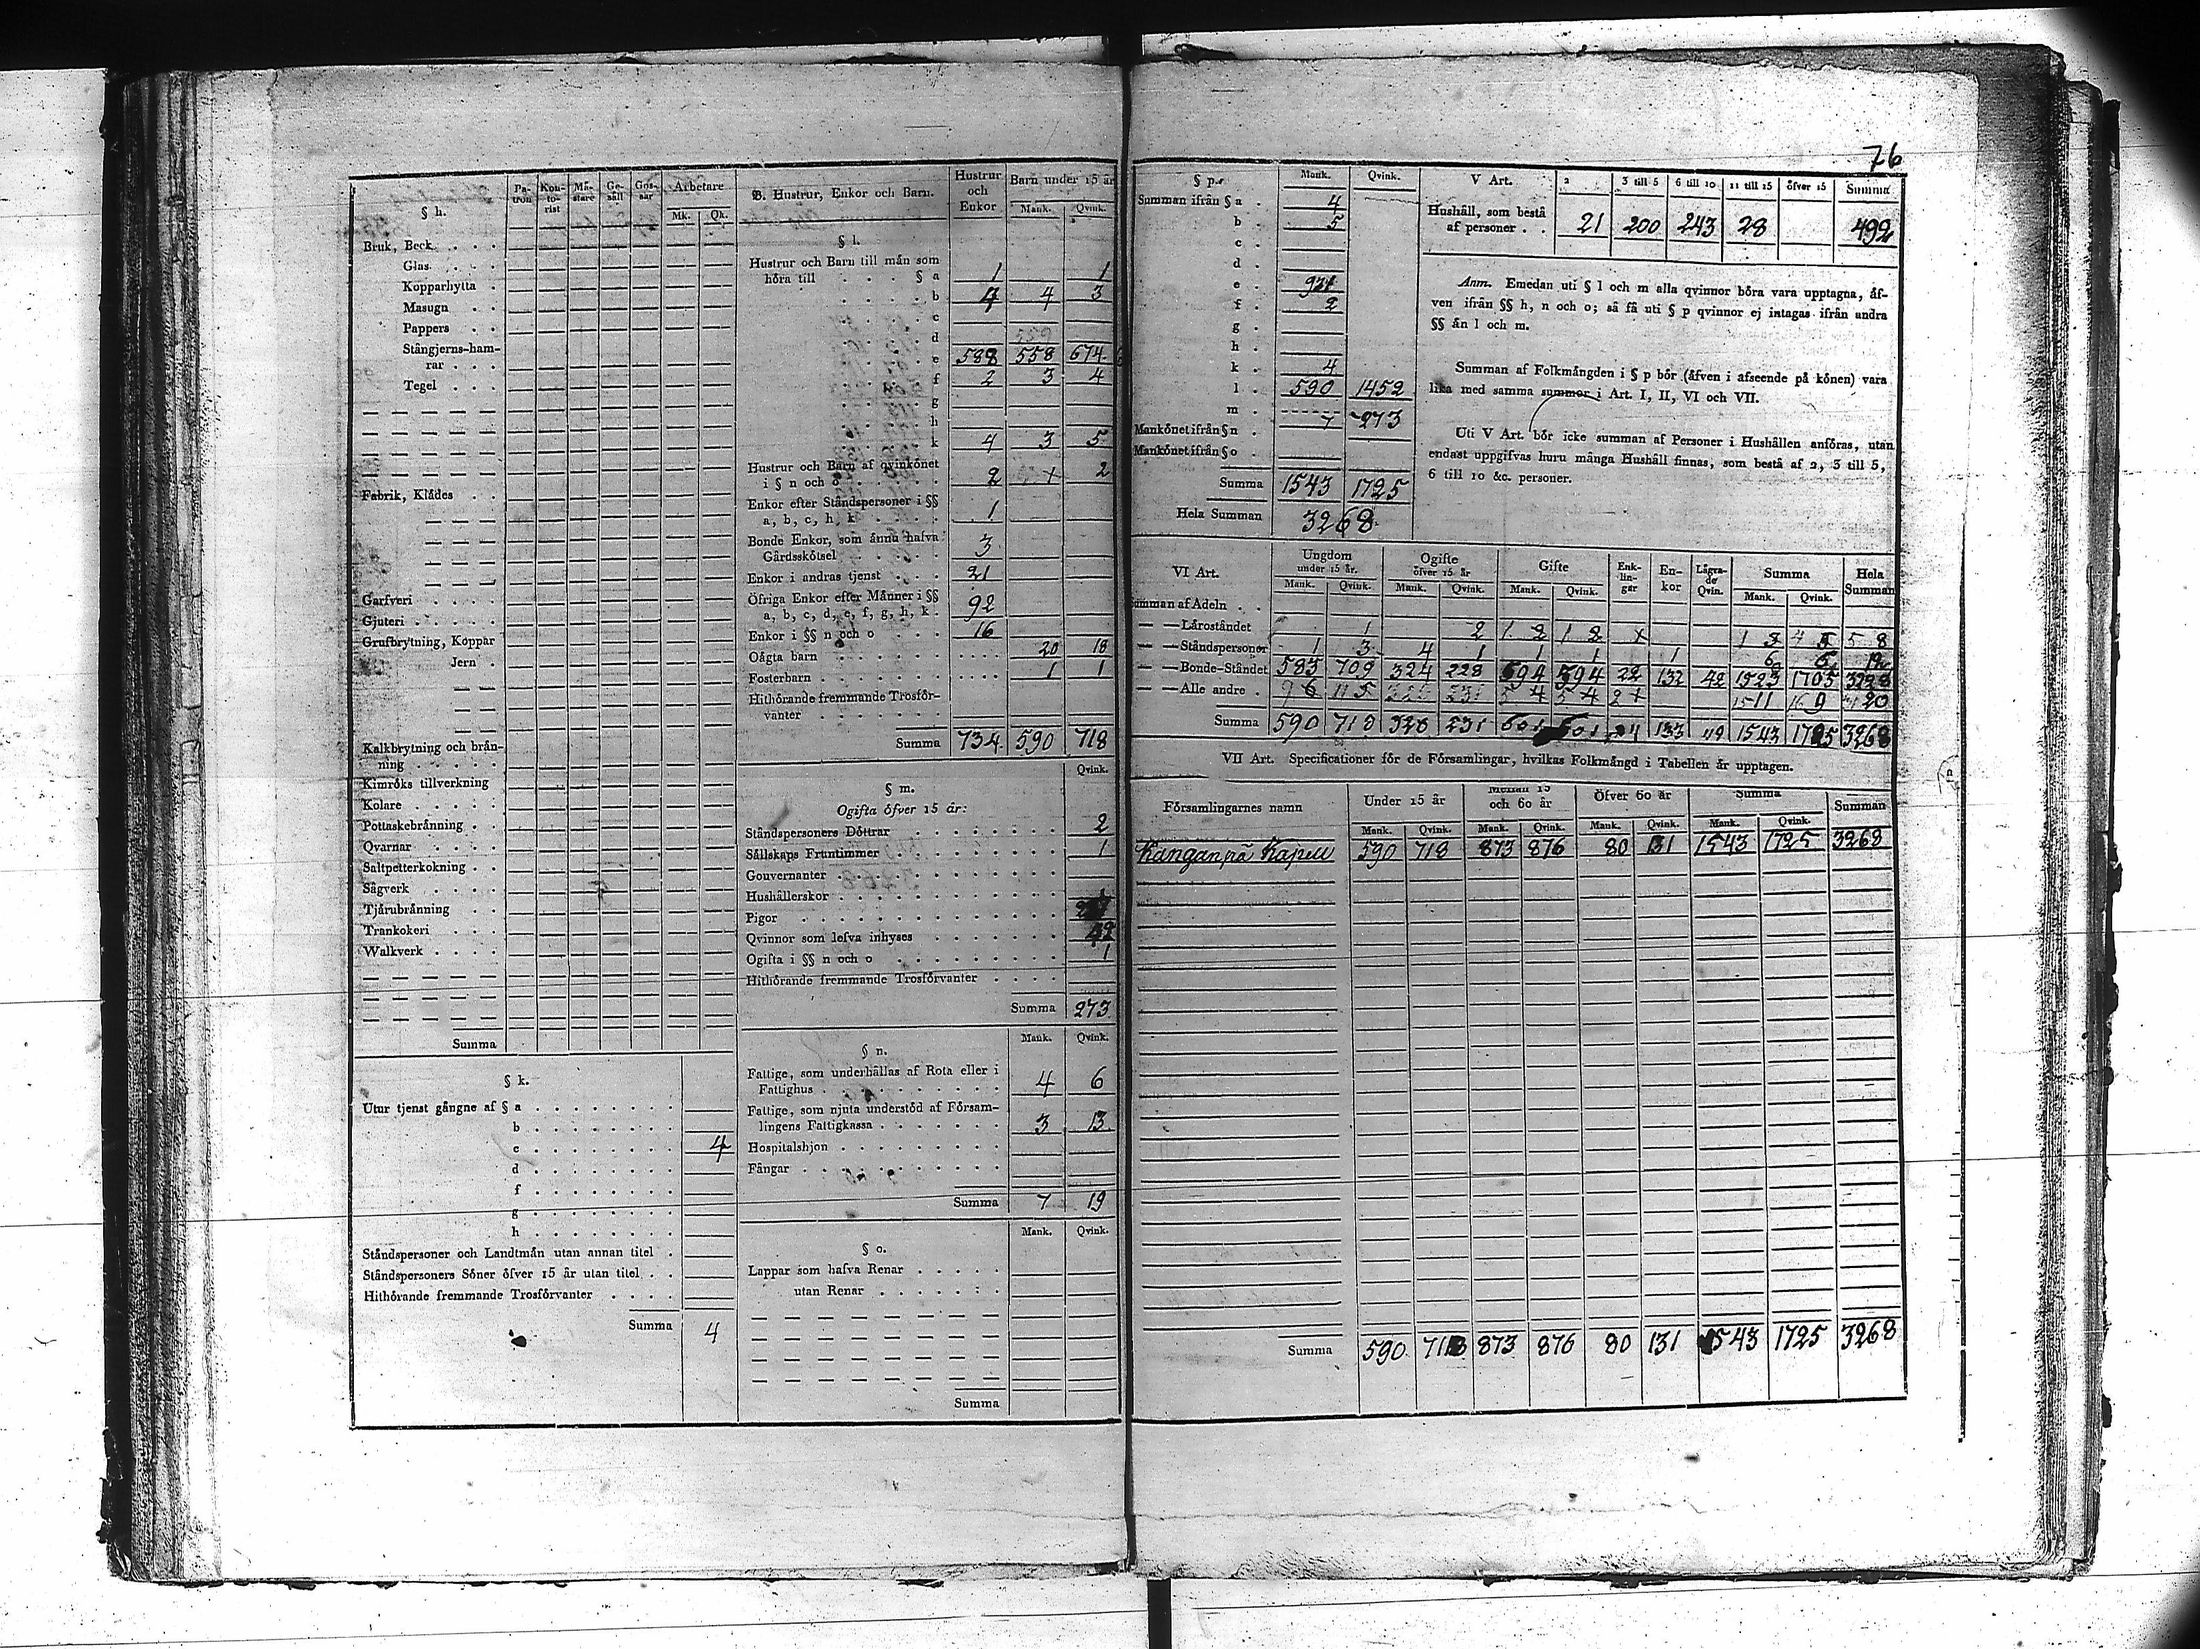 76
§ h.
Pa-tron Kon-to-rist Mä-stare Ge-säll Gos-sar Arbetare
Mk. Qk.
Bruk, Beck
Glas
Kopparhytta
Masugn
Pappers
Stångjerns-ham-
rar
Tegel
Fabrik, Klädes
Garfveri
Gjuteri
Grufbrytning, Koppar
Jern
Kalkbrytning och brän-
ning
Kimröks tillverkning
Kolare
Pottaskebränning
Qvarnar
Saltpetterkokning
Sågverk
Tjärubränning
Trankokeri
Walkverk
Summa
§ k.
Utur tjenst gångne af § a
b
c 4
d
f
g
h
Ståndspersoner och Landtmän utan annan titel
Ståndspersoners Söner öfver 15 år utan titel
Hithörande fremmande Trosförvanter
Summa 4
B. Hustrur, Enkor och Barn.
Hustrur och Enkor Barn under 15 år
Mank. Qvink.
§ l.
Hustrur och Barn till män som
höra till § a 1 1
b 4 3
c
d
e 588 558 674
f 2 3 4
g
h
k 4 3 5
Hustrur och Barn af qvinkönet
i § n och o 2 2
Enkor efter Ståndspersoner i §§
a, b, c, h, k 1
Bonde Enkor, som ännu hafva
Gårdsskötsel 3
Enkor i andras tjenst 21
Öfriga Enkor efter Männer i §§
a, b, c, d, e, f, g, h, k 92
Enkor i §§ n och o 16
Oägta barn 20 18
Fosterbarn 1 1
Hithörande fremmande Trosför-
vanter
Summa 734 590 718
Qvink.
§ m.
Ogifta öfver 15 år:
Ståndspersoners Döttrar 2
Sällskaps Fruntimmer 1
Gouvernanter
Hushållerskor
Pigor
Qvinnor som lefva inhyses
Ogifta i §§ n och o 1
Hithörande fremmande Trosförvanter
Summa 273
Mank. Qvink.
§ n.
Fattige, som underhållas af Rota eller i
Fattighus 4 6
Fattige, som njuta understöd af Försam-
lingens Fattigkassa 3 13
Hospitalshjon
Fångar
Summa 7 19
Mank. Qvink.
§ o.
Lappar som hafva Renar
utan Renar
Summa
§ p. Mank. Qvink.
Summan ifrån § a 4
b 5
c
d
e
f 2
g
h
k 4
l 590 1452
m 273
Mankönet ifrån § n 7
Mankönet ifrån § o
Summa 1543 1725
Hela Summan 3268
V Art. 2 3 till 5 6 till 10 11 till 15 öfver 15 Summa
Hushåll, som bestå
af personer 21 200 243 28 492
Anm. Emedan uti § l och m alla qvinnor böra vara upptagna, äf-
ven ifrån §§ h, n och o; så få uti § p qvinnor ej intagas ifrån andra
§§ än l och m.
Summan af Folkmängden i § p bör (äfven i afseende på könen) vara
lika med samma summor i Art. I, II, VI och VII.
Uti V Art. bör icke summan af Personer i Hushållen anföras, utan
endast uppgifvas huru många Hushåll finnas, som bestå af 2, 3 till 5,
6 till 10 &c. personer.
VI Art. Ungdom under 15 år. Ogifte öfver 15 år Gifte Enk-lin-gar En-kor Lägra-de Qvin. Summa Hela Summan
Mank. Qvink. Mank. Qvink. Mank. Qvink. Mank. Qvink.
Summan af Adeln
— — Läroståndet 1 2
— — Ståndspersoner 1 3 4 1 1 1 1
— — Bonde-Ståndet 583 709 324 228 594 594 22 132 42 1523 1705 3228
— — Alle andre
Summa 590 718 328 231 601 601 24 133 1543 1725 3268
VII Art. Specificationer för de Församlingar, hvilkas Folkmängd i Tabellen är upptagen.
Församlingarnes namn Under 15 år Mellan 15 och 60 år Öfver 60 år Summa Summan
Mank. Qvink. Mank. Qvink. Mank. Qvink. Mank. Qvink.
Kanganpä Kapell 590 718 873 876 80 131 1543 1725 3268
Summa 590 718 873 876 80 131 1543 1725 3268